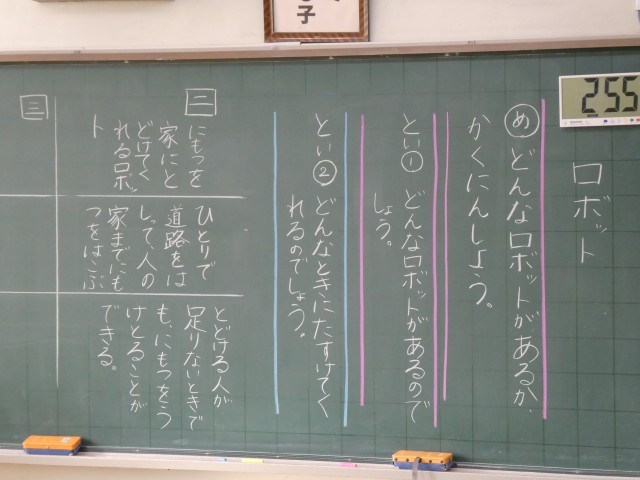 子
255
ロボット
め どんなロボットがあるか、
かくにんしよう。
とい① どんなロボットがあるので
しょう。
とい② どんなときにたすけてく
れるのでしょう。
三
にもつを
家にと
どけてく
れるロボッ
ト
ひとりで
道路をは
しって、人の
家までにも
つをはこぶ
とどける人が
足りないときで
も、にもつをう
けとることが
できる。
三